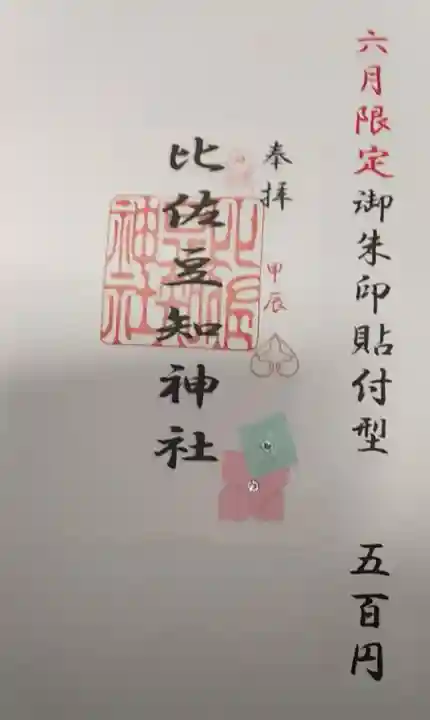 六月限定御朱印貼付型 五百円
奉拝
甲辰
比佐豆知神社
神社